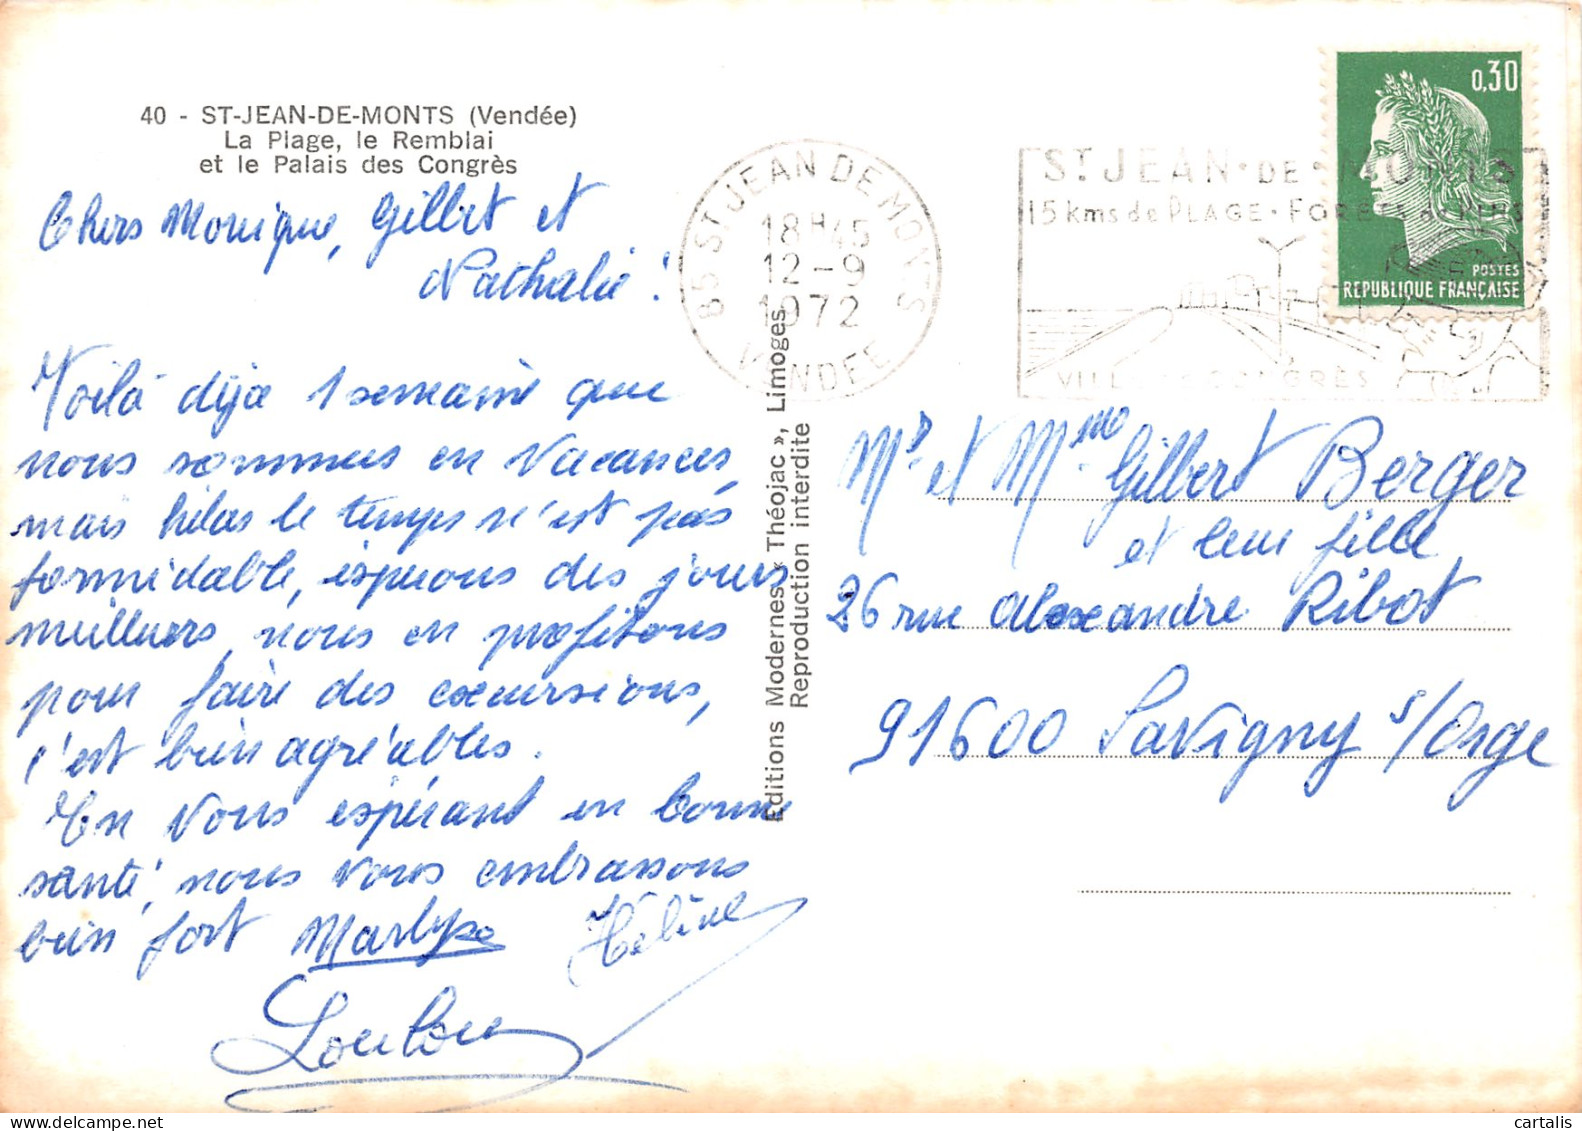 40 - ST-JEAN-DE-MONTS (Vendée)
La Plage, le Remblai
et le Palais des Congrès
Chers Monique, Gilbert et
Nathalie !
Voilà déja 1 semaine que
nous sommes en vacances,
mais hélas le temps n'est pas
formidable, espérons des jours
meilleurs, nous en profitons
pour faire des excursions,
c'est bien agréables.
En vous espérant en bonne
santé, nous vous embrassons
bien fort Marlyse Hélène
Loulou
Editions Modernes « Théojac », Limoges
Reproduction interdite
85 ST JEAN DE MONTS
18H45
12-9
1972
VENDEE
ST JEAN·DE·MONTS
15 kms de PLAGE·FORÊTS de PINS
VILLE DE CONGRÈS
0,30
POSTES
REPUBLIQUE FRANÇAISE
Mr et Mme Gilbert Berger
et leur fille
26 rue Alexandre Ribot
91600 Savigny s/Orge
cartalis